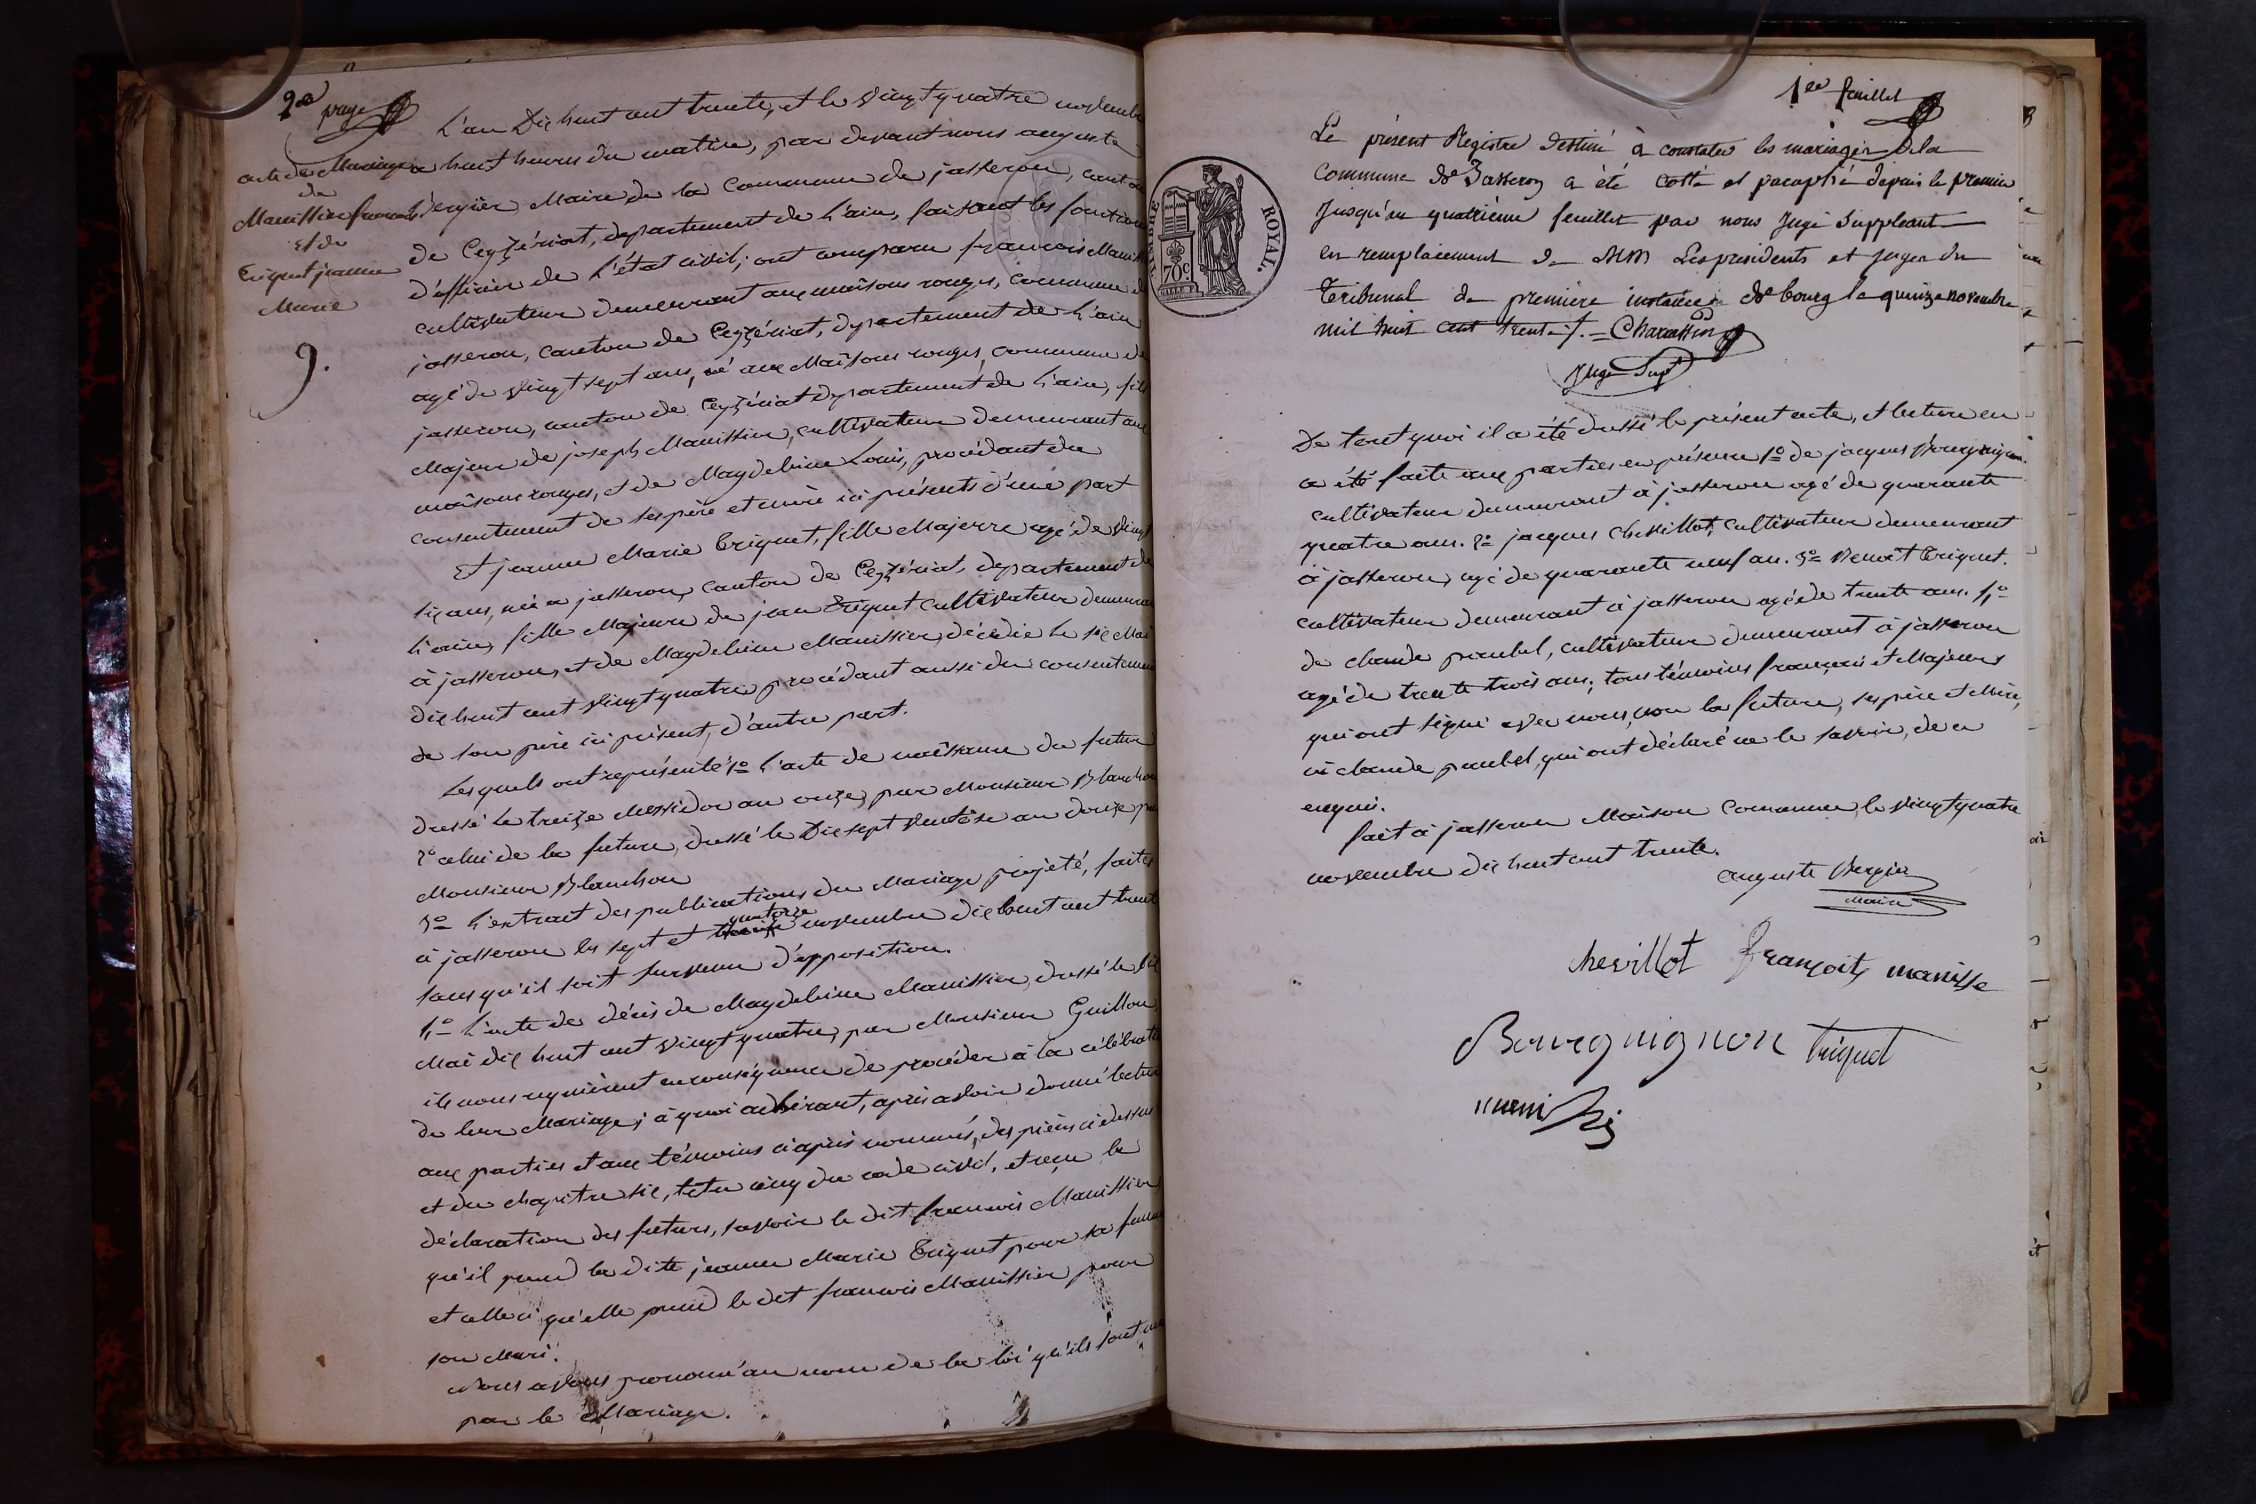 2e page
acte de Mariage
de
Manissier francois
et de
Triquet jeanne
Marie
9.
L'an Dix huit cent trente, et le vingt quatre novembre
a huit heures du matin, par devant nous auguste
Vergier Maire de la Commune de jasseron, canton
de Ceyzériat, departement de L'ain, faisant les fonctions
d'officier de L'état civil; ont comparu francois Maniss
cultivateur demeurant aux maisons rouges, commune de
jasseron, canton de Ceyzériat, departement de L'ain
agé de vingt sept ans, né aux Maisons rouges, commune de
jasseron, canton de Ceyzériat departement de L'ain, fils
Majeur de joseph Manissier, cultivateur demeurant aux
maisons rouges, et de Magdelaine Louis, procédant du
consentement de ses père et mère ici présents d'une part
Et jeanne Marie Triquet, fille Majeure agé de vingt
six ans, née a jasseron, canton de Ceyzériat, departement de
L'ain, fille Majeure de jean Triquet cultivateur demeurant
à jasseron, et de Magdelaine Manissier, décédée le six Mai
dix huit cent vingt quatre, procédant aussi du consentement
de son père ici présent, d'autre part.
Lesquels ont représenté 1o L'acte de naissance du futur
dressé le treize Messidor an onze, par Monsieur Blanchon
2o celui de la future, dressé le Dix sept Ventôse an douze par
Monsieur Blanchon
3o L'extrait des publications du Mariage projeté, faites
à jasseron les sept et quatorze novembre dix huit cent trente
sans qu'il soit survenu d'opposition.
4o L'acte de décès de Magdelaine Manissier, dressé le six
Mai dix huit cent vingt quatre, par Monsieur Guillon
ils nous requièrent en conséquence de procéder à la célébration
de leur Mariage; à quoi adhérant, après avoir donné lecture
aux parties et aux témoins ci après nommés, des pièces ci dessus
et du chapitre six, titre cinq du code civil, et reçu la
déclaration des futurs, savoir le dit francois Manissier
qu'il prend la dite jeanne Marie Triquet pour sa femme
et celle ci qu'elle prend le dit francois Manissier pour
son Mari.
Nous avons prononcé au nom de la loi qu'ils sont unis
par le Mariage.
1er feuillet
Le présent Registre destiné à constater les mariages de la
Commune de Jasseron a été cotté et paraphé depuis le premier
Jusqu'au quatrième feuillet par nous Juge Suppléant
en remplacement de MM Les présidents et juges du
Tribunal de première instance de bourg le quinze novembre
mil huit cent trente ./. = Charassin
Juge Supt
TIMBRE ROYAL.
70c
De tout quoi il a été dressé le présent acte, et lecture en
a été faite aux parties en présence 1o de jacques Bourguignon
cultivateur demeurant à jasseron agé de quarante
quatre ans. 2o jacques Chevillot, cultivateur demeurant
à jasseron, agé de quarante neuf ans. 3o Benoit Triquet.
cultivateur demeurant à jasseron agé de trente ans. 4o
de claude paubel, cultivateur demeurant à jasseron
agé de trente trois ans; tous témoins français et Majeurs
qui ont signé avec nous, non la future, ses père et Mère,
ni claude paubel, qui ont déclaré ne le savoir, de ce
enquis.
fait à jasseron Maison Commune, le vingt quatre
novembre dix huit cent trente.
auguste Vergier
Maire
chevillot françois manisse
Bourguignon Triquet